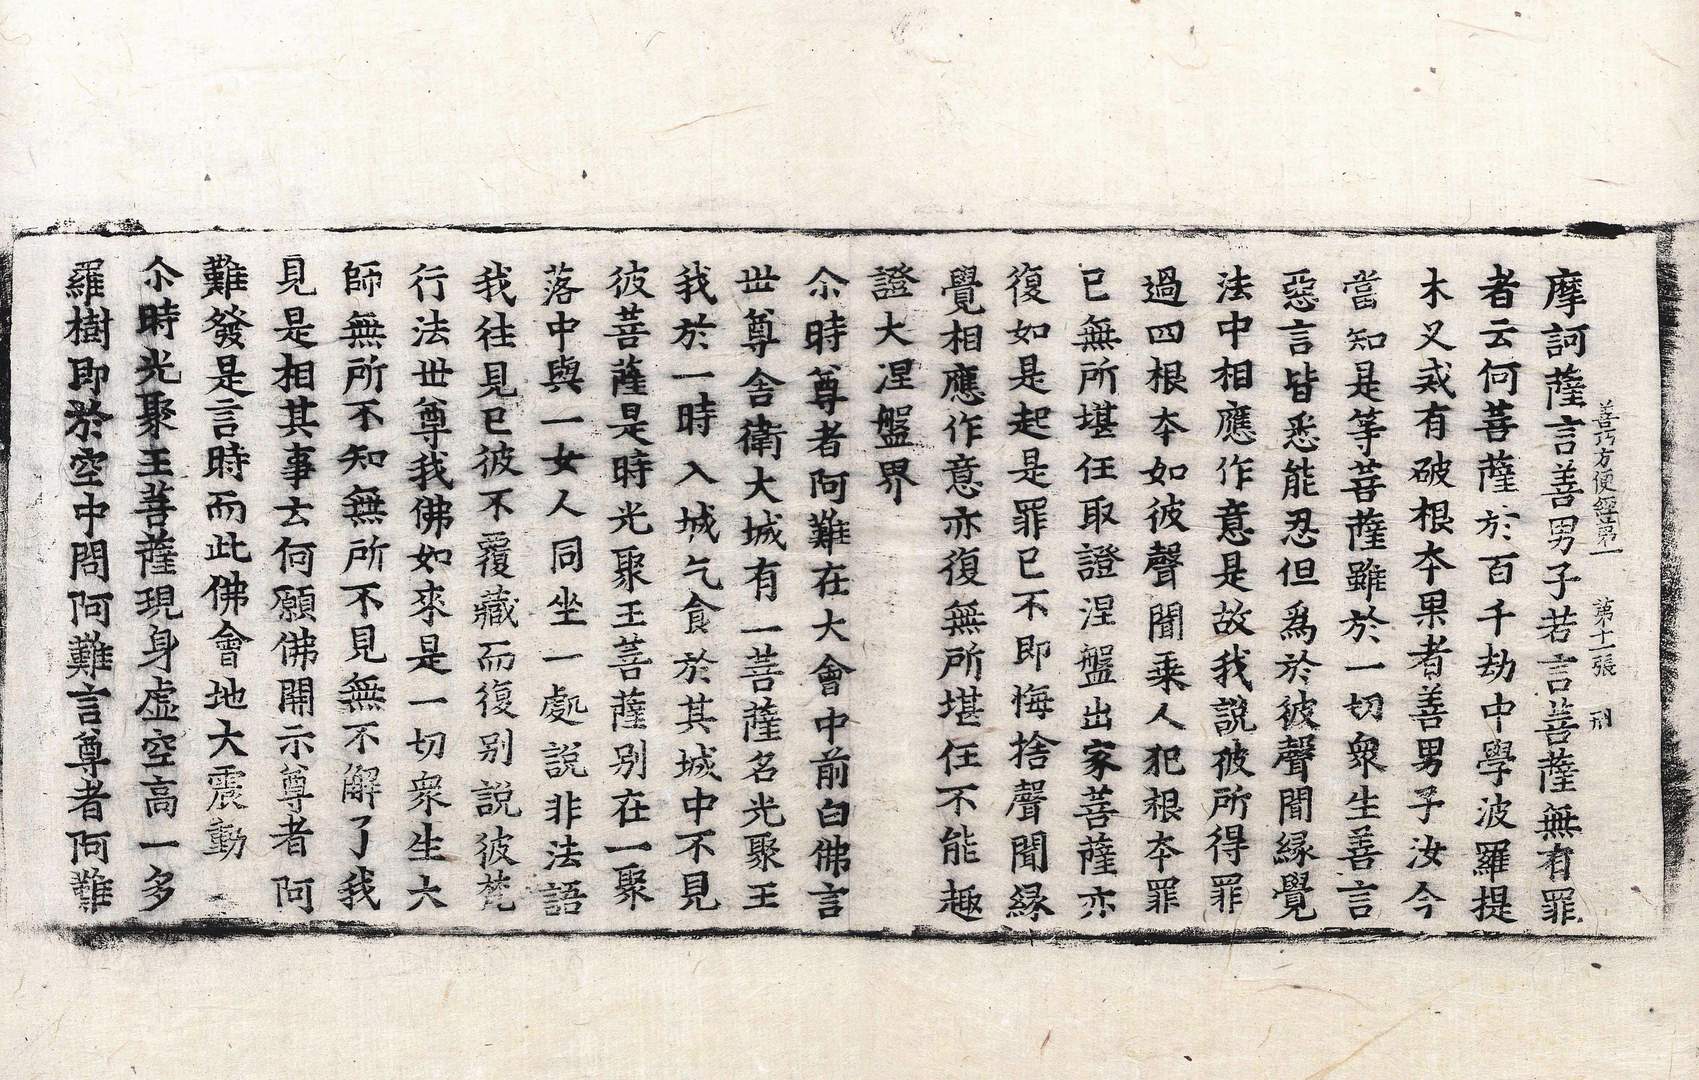 善巧方便經第一 第十一張 刑
摩訶薩言善男子若言菩薩無有罪
者云何菩薩於百千劫中學波羅提
木叉或有破根夲果者善男子汝今
當知是等菩薩雖於一切衆生善言
惡言皆悉能忍但爲於彼聲聞緣覺
法中相應作意是故我說彼所得罪
過四根夲如彼聲聞乘人犯根夲罪
已無所堪任取證涅盤出家菩薩亦
復如是起是罪已不即悔捨聲聞緣
覺相應作意亦復無所堪任不能趣
證大涅盤界
尒時尊者阿難在大會中前白佛言
世尊舍衛大城有一菩薩名光聚王
我於一時入城乞食於其城中不見
彼菩薩是時光聚王菩薩別在一聚
落中與一女人同坐一處說非法語
我往見已彼不覆藏而復別說彼梵
行法世尊我佛如來是一切衆生大
師無所不知無所不見無不解了我
見是相其事云何願佛開示尊者阿
難發是言時而此佛會地大震動
尒時光聚王菩薩現身虛空高一多
羅樹即於空中問阿難言尊者阿難